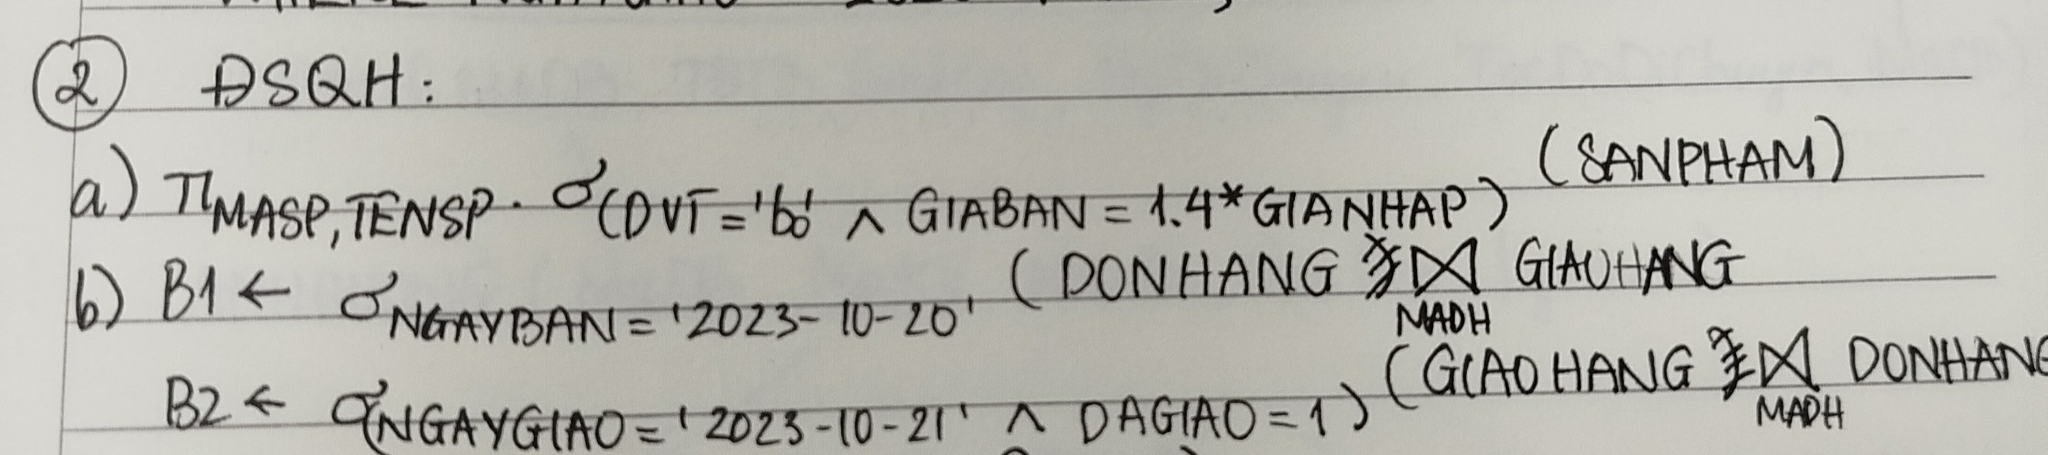 ② ĐSQH:
a) π MASP, TENSP . σ (DVT = 'bộ' ∧ GIABAN = 1.4 * GIANHAP) (SANPHAM)
b) B1 ← σ NGAYBAN = '2023-10-20' (DONHANG ⋈ MADH GIAOHANG
B2 ← σ NGAYGIAO = '2023-10-21' ∧ DAGIAO = 1) (GIAOHANG ⋈ MADH DONHANG